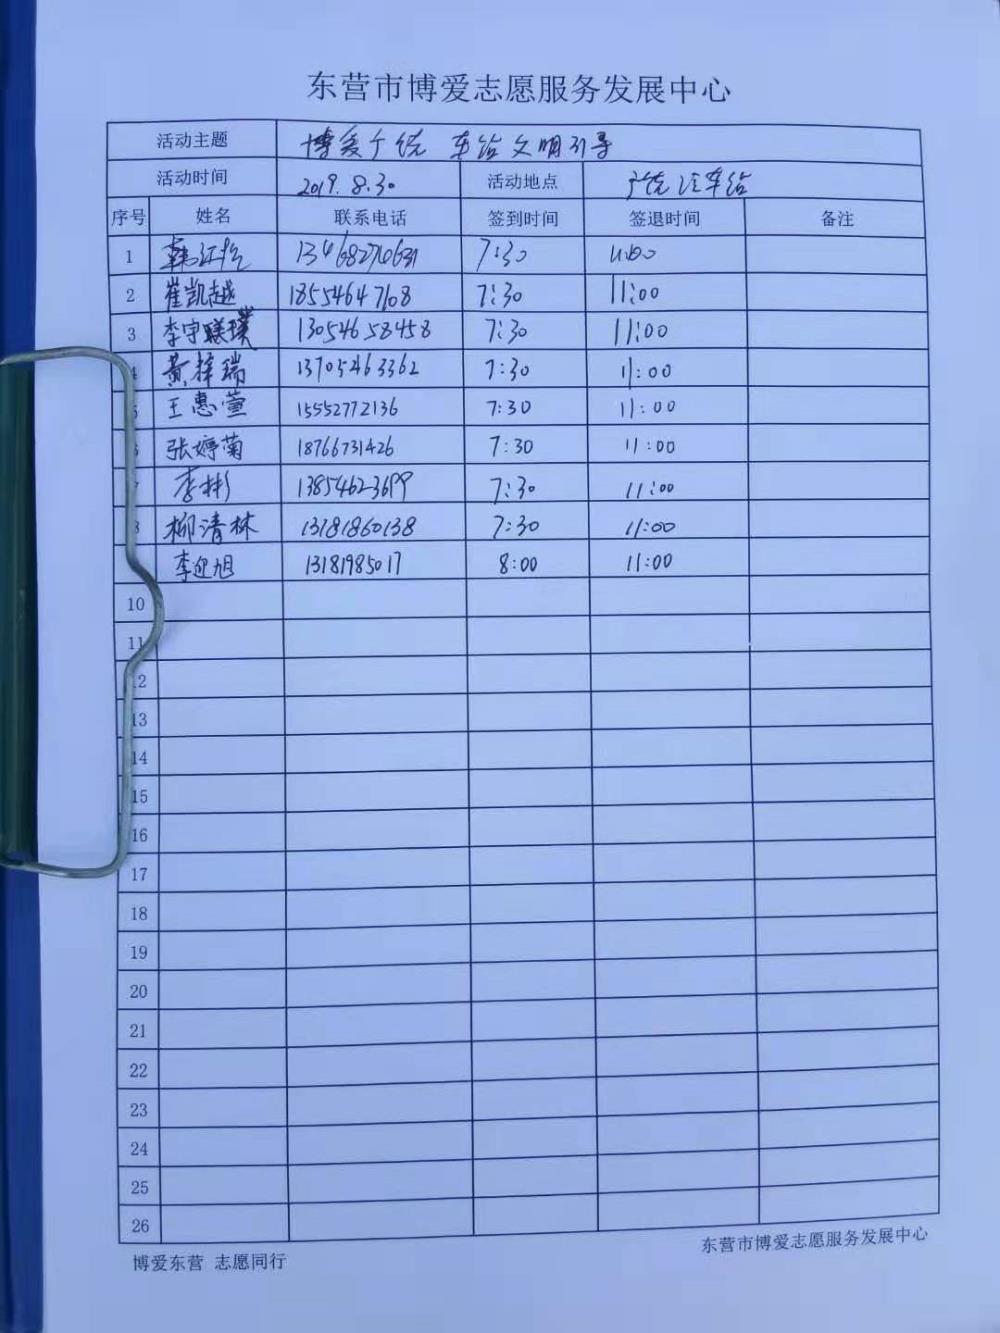 东营市博爱志愿服务发展中心
活动主题 博爱广饶 车站文明引导
活动时间 2019.8.30 活动地点 广饶汽车站
序号 姓名 联系电话 签到时间 签退时间 备注
1 韩 7:30 11:00
2 崔凯越 18554647108 7:30 11:00
3 李宇联璞 13054658458 7:30 11:00
4 黄梓瑞 13705463362 7:30 11:00
5 王惠萱 15552772136 7:30 11:00
6 张婷菊 18766731426 7:30 11:00
7 李彬 13854623699 7:30 11:00
8 柳清林 13181860138 7:30 11:00
李迎旭 13181985017 8:00 11:00
10
11
12
13
14
15
16
17
18
19
20
21
22
23
24
25
26
博爱东营 志愿同行 东营市博爱志愿服务发展中心